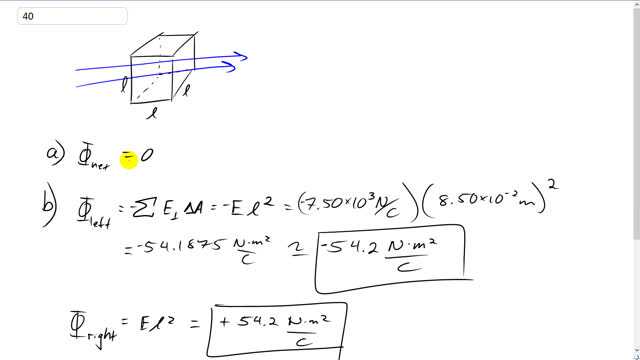 40
l
l
l
a) Φ_net = 0
b) Φ_left = -Σ E⊥ ΔA = -El² = (-7.50×10³ N/C)(8.50×10⁻² m)²
= -54.1875 N·m²/C ≃ -54.2 N·m²/C
Φ_right = El² = +54.2 N·m²/C